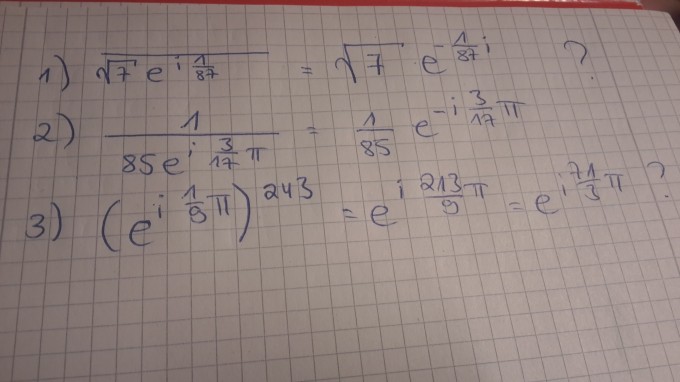 1) \overline{\sqrt{7} e^{i \frac{1}{87}}} = \sqrt{7} \cdot e^{-\frac{1}{87} i} ?
2) \frac{1}{85 e^{i \frac{3}{17} π}} = \frac{1}{85} e^{-i \frac{3}{17} π}
3) (e^{i \frac{1}{9} π})^{243} = e^{i \frac{213}{9} π} = e^{i \frac{71}{3} π} ?